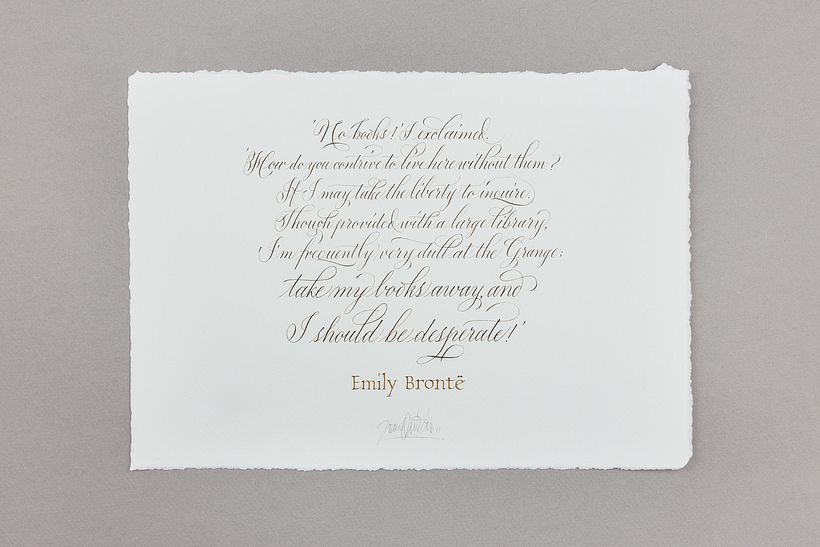 'No books!' I exclaimed.
'How do you contrive to live here without them?
If I may take the liberty to inquire.
Though provided with a large library,
'I'm frequently very dull at the Grange;
take my books away, and
I should be desperate!'
Emily Brontë